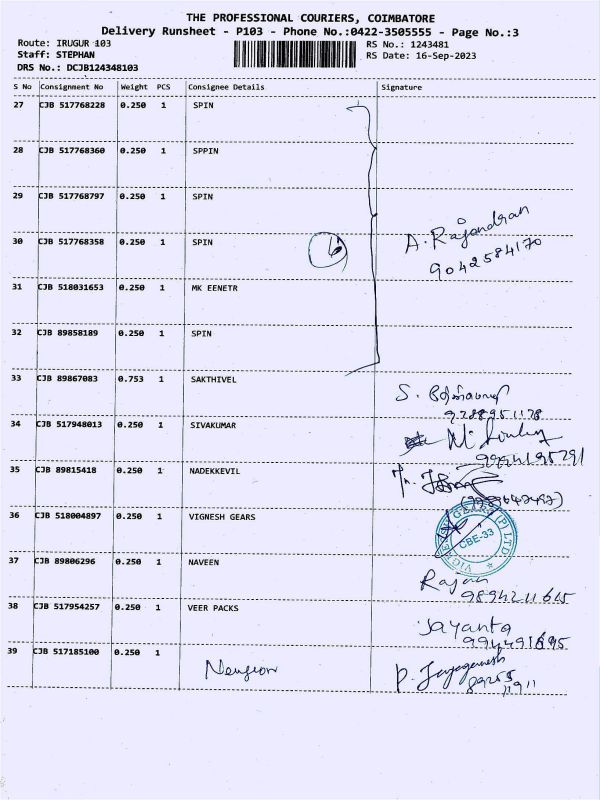 THE PROFESSIONAL COURIERS, COIMBATORE
Delivery Runsheet - P103 - Phone No.:0422-3505555 - Page No.:3
Route: IRUGUR 103 RS No.: 1243481
Staff: STEPHAN RS Date: 16-Sep-2023
DRS No.: DCJB124348103
S No Consignment No Weight PCS Consignee Details Signature
27 CJB 517768228 0.250 1 SPIN
28 CJB 517768360 0.250 1 SPPIN
29 CJB 517768797 0.250 1 SPIN
A. Rajandran
30 CJB 517768358 0.250 1 SPIN 6
9042584170
31 CJB 518031653 0.250 1 MK EENETR
32 CJB 89858189 0.250 1 SPIN
33 CJB 89867083 0.753 1 SAKTHIVEL S.
34 CJB 517948013 0.250 1 SIVAKUMAR
9994195291
35 CJB 89815418 0.250 1 NADEKKEVIL
36 CJB 518004897 0.250 1 VIGNESH GEARS VIGNESH GEARS (P) LTD CBE-33
37 CJB 89806296 0.250 1 NAVEEN Rajan
9894211615
38 CJB 517954257 0.250 1 VEER PACKS Jayanta
39 CJB 517185100 0.250 1 P. Jayaganesh
89255
11911